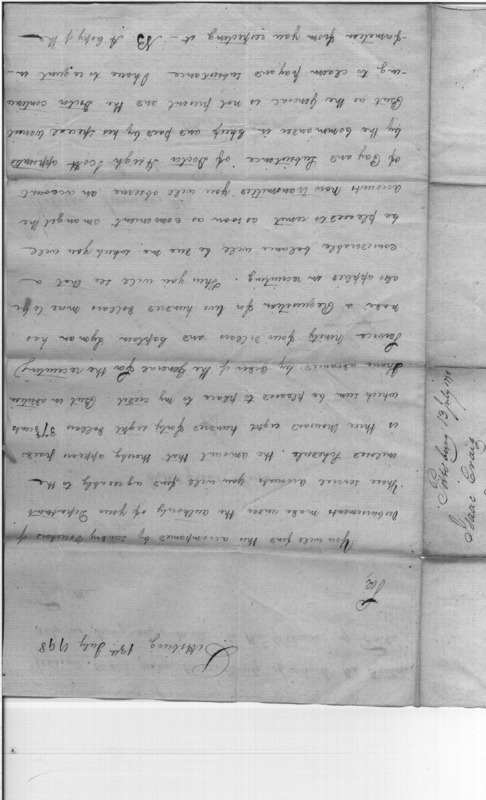 Pittsburg 13th July 1798
Sir,
You will find this accompanied by sundry vouchers of
disbursements made under the authority of your Department
These several accounts you will find agreeably to the
enclosed Schedule, the amount that thereby appears paid
is three thousand eight hundred forty eight dollars 87/3 cents
which sum be pleased to place to my credit But in addition
I have advanced by order of the General (for the recruiting
service) ninety four dollars and Captain Lyman has
made a Requisition for two hundred dollars more to be
also applied in recruiting. Thus you will see that a
considerable balance will be due to me which you will
be pleased to remit as soon as convenient amongst the
accounts now transmitted you will observe an account
of Pay and Subsistance of Doctor Hugh Scott appointed
by the Commander in Chief and paid by his special warrant
But as the general is not present and the Doctor continu
-ing to claim pay and subsistance I have to request in-
-formation from you respecting it — NB A Copy of the
Pittsburg 13 July 1798
Isaac Craig